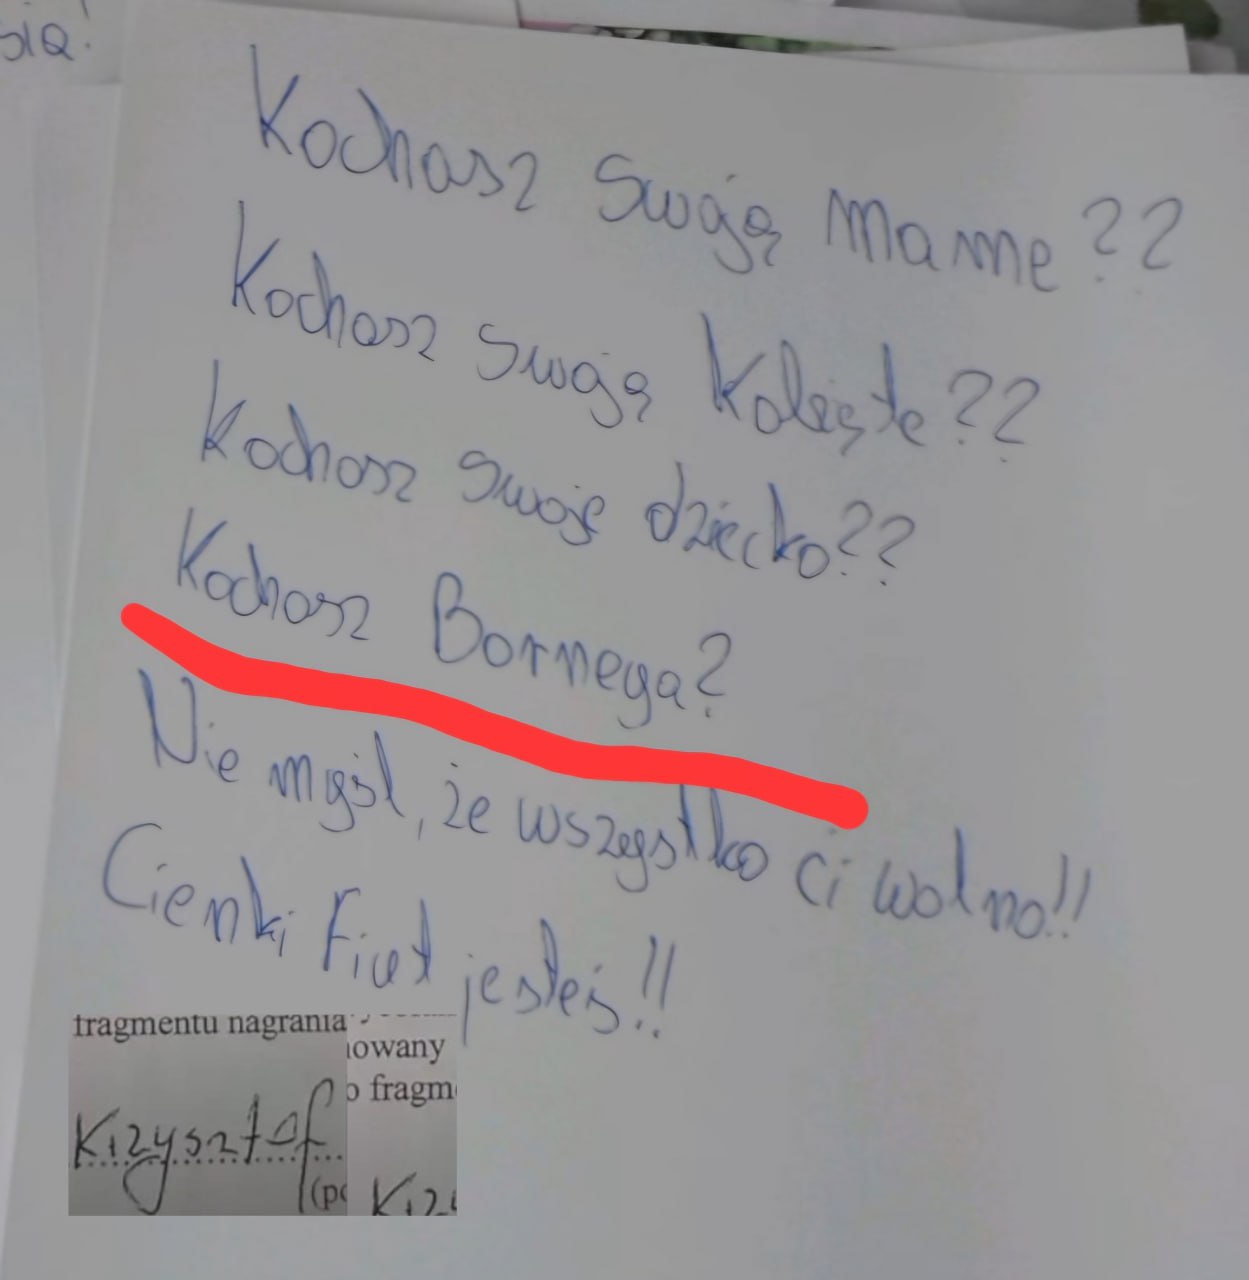 się!
Kochasz swoją mame??
Kochasz swoją Koleżkę??
Kochasz swoje dziecko??
Kochasz Bornega?
Nie myśl, że wszystko ci wolno!!
Cienki Fiut jesteś!!
fragmentu nagrania
nowany
o fragm
Krzysztof
(po
Krzy